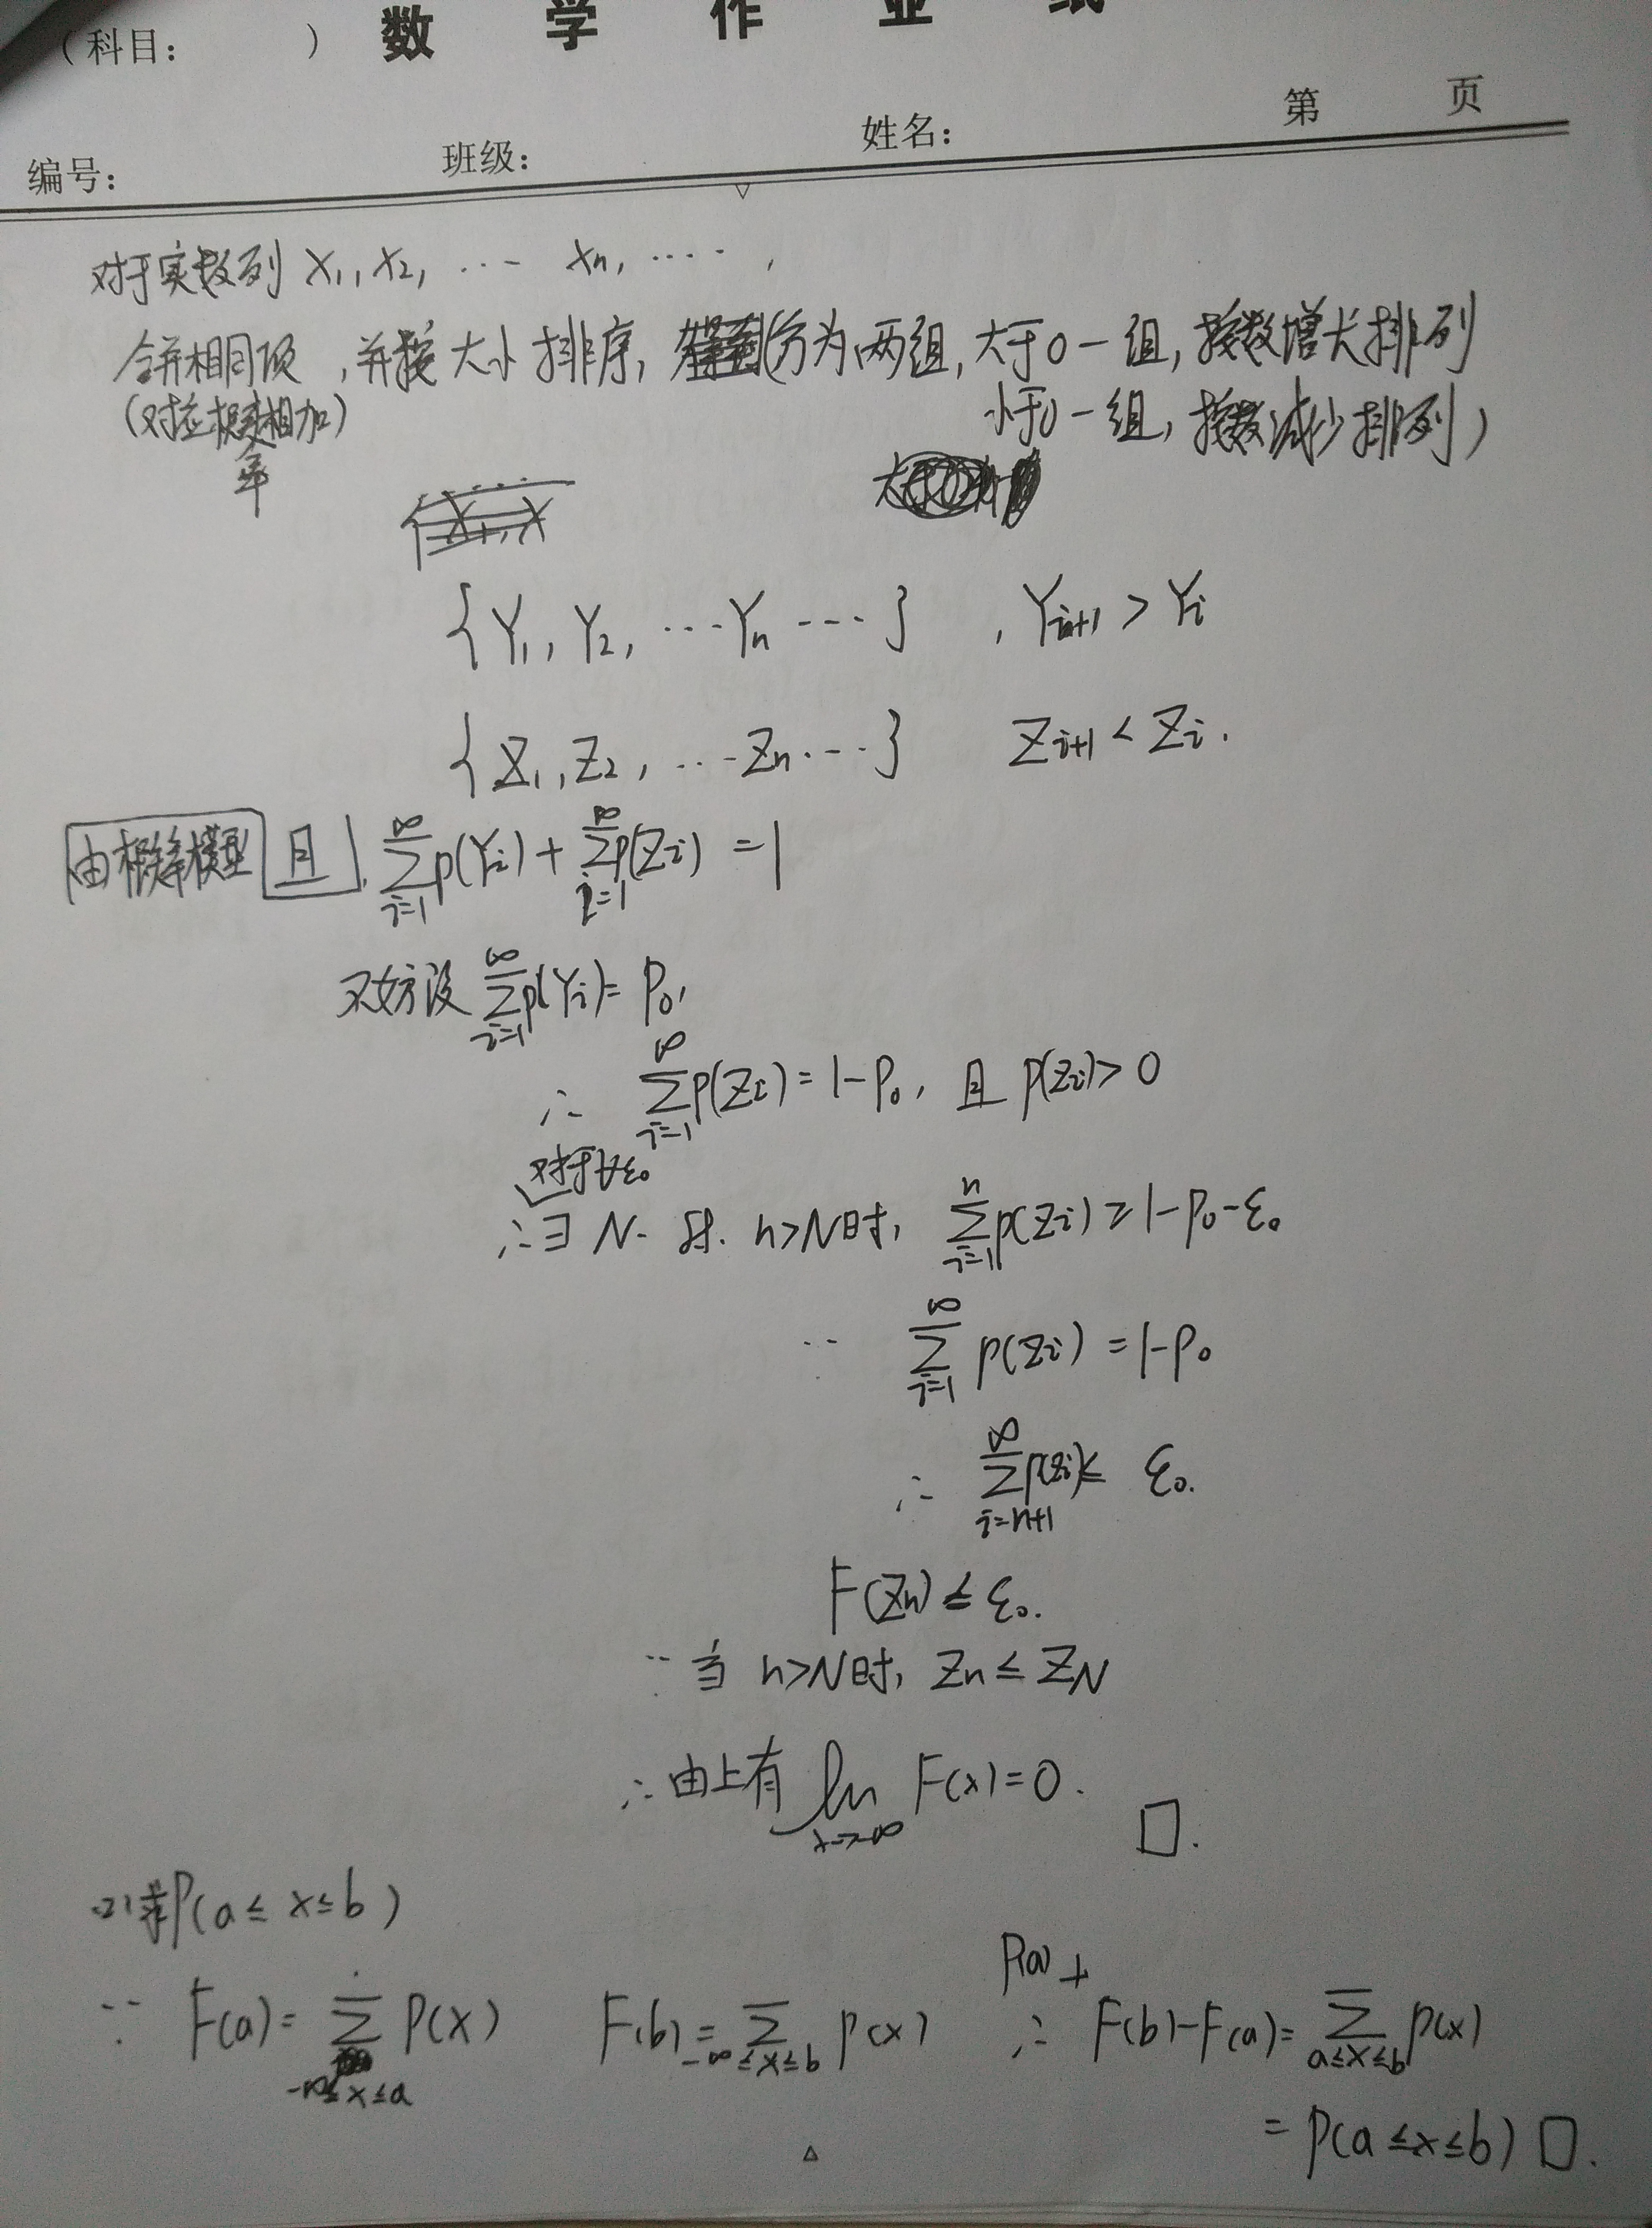 (科目: ) 数 学 作 业 纸
编号: 班级: 姓名: 第 页
对于实数列 X₁, X₂, ⋯ Xn, ⋯⋯,
合并相同项, 并按大小排序, (分为两组, 大于0一组, 按数增大排列
(对应概率相加) 小于0一组, 按数减少排列)
{Y₁, Y₂, ⋯Yn ⋯}, Yᵢ₊₁ > Yᵢ
{Z₁, Z₂, ⋯Zn⋯} Zᵢ₊₁ < Zᵢ.
由概率模型 且, ∑_{i=1}^{∞} p(Yᵢ) + ∑_{i=1}^{∞} p(Zᵢ) = 1
不妨设 ∑_{i=1}^{∞} p(Yᵢ) = P₀,
∴ ∑_{i=1}^{∞} p(Zᵢ) = 1-P₀, 且 p(Zᵢ) > 0
对于∀ε₀
∴ ∃ N. s.t. n>N时, ∑_{i=1}^{n} p(Zᵢ) ≥ 1-P₀-ε₀
∵ ∑_{i=1}^{∞} p(Zᵢ) = 1-P₀
∴ ∑_{i=n+1}^{∞} p(Zᵢ) ≤ ε₀.
F(Zn) ≤ ε₀.
∵ 当 n>N时, Zn ≤ ZN
∴ 由上有 lim_{x→-∞} F(x) = 0. □.
(2) 求P(a ≤ x ≤ b)
P(a) +
∵ F(a) = ∑_{-∞≤x≤a} P(x) F(b) = ∑_{-∞≤x≤b} p(x) ∴ F(b)-F(a) = ∑_{a≤x≤b} p(x)
= P(a ≤ x ≤ b) □.